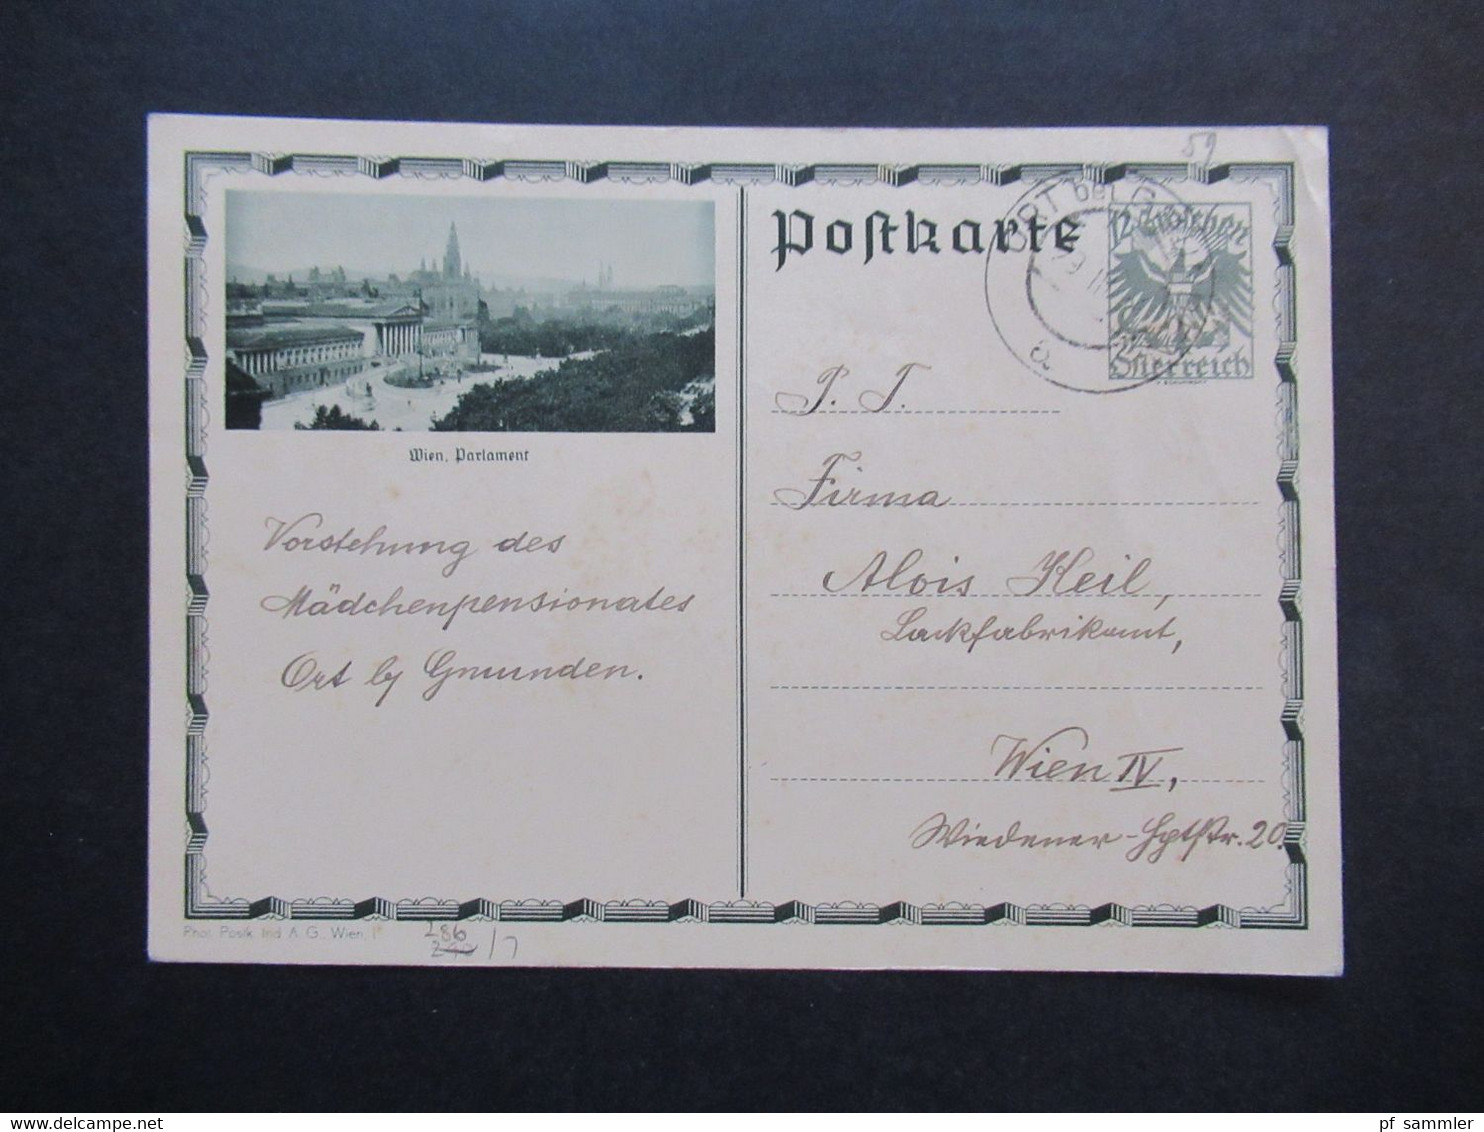 59
Postkarte
ORT bei G
12 Groschen
Österreich
Wien, Parlament
P. T.
Firma
Alois Keil,
Lackfabrikant,
Wien IV,
Wiedener-Hptstr. 20.
Vorstehung des
Mädchenpensionates
Ort b/ Gmunden.
Phot. Postk. Ind A. G., Wien, I
286
240 /7
© delcampe.net
pf_sammler